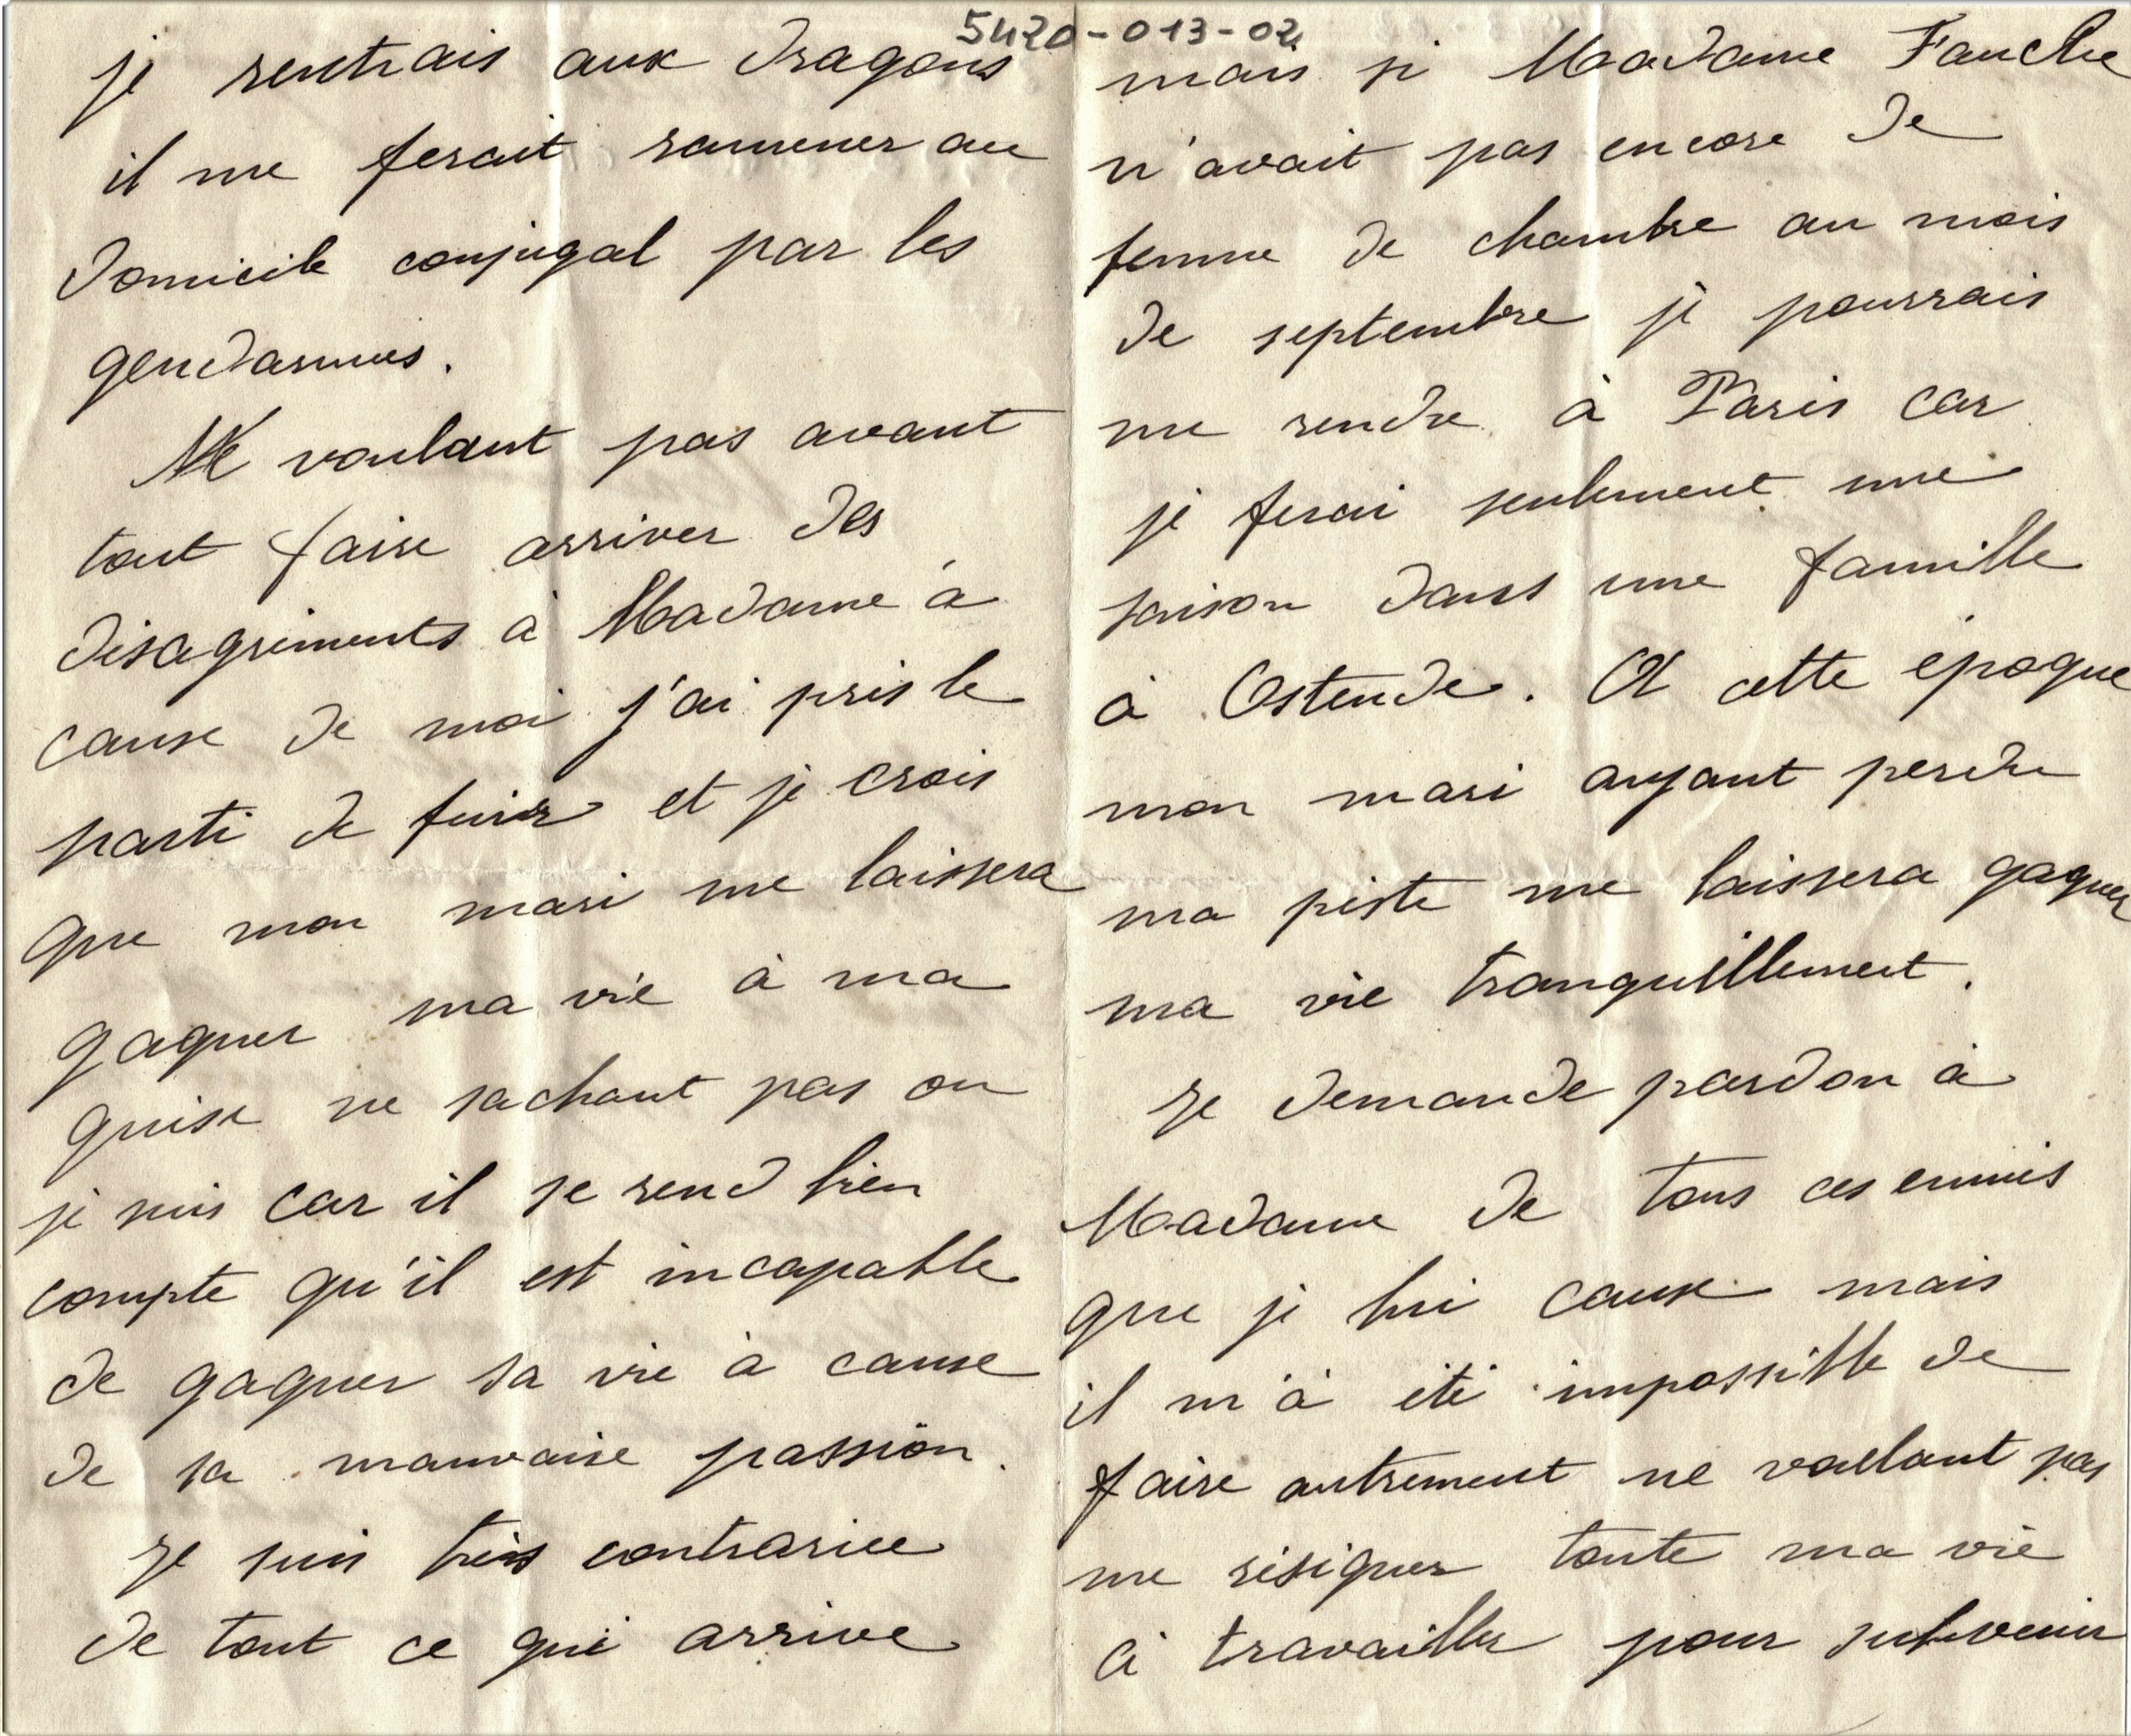 5420-013-02
je rentrais aux Dragons
il me ferait ramener au
domicile conjugal par les
gendarmes.
Ne voulant pas avant
tout faire arriver des
désagréments à Madame à
cause de moi j'ai pris le
parti de fuir et je crois
que mon mari me laissera
gagner ma vie à ma
guise ne sachant pas ou
je suis car il se rend bien
compte qu'il est incapable
de gagner sa vie à cause
de sa mauvaise passion.
Je suis très contrariée
de tout ce qui arrive
mais si Madame Fauche
n'avait pas encore de
femme de chambre au mois
de septembre je pourrais
me rendre à Paris car
je ferai seulement une
saison dans une famille
à Ostende. A cette époque
mon mari ayant perdu
ma piste me laissera gagner
ma vie tranquillement.
Je demande pardon à
Madame de tous ces ennuis
que je lui cause mais
il m'à été impossible de
faire autrement ne voulant pas
me résigner toute ma vie
à travailler pour subvenir